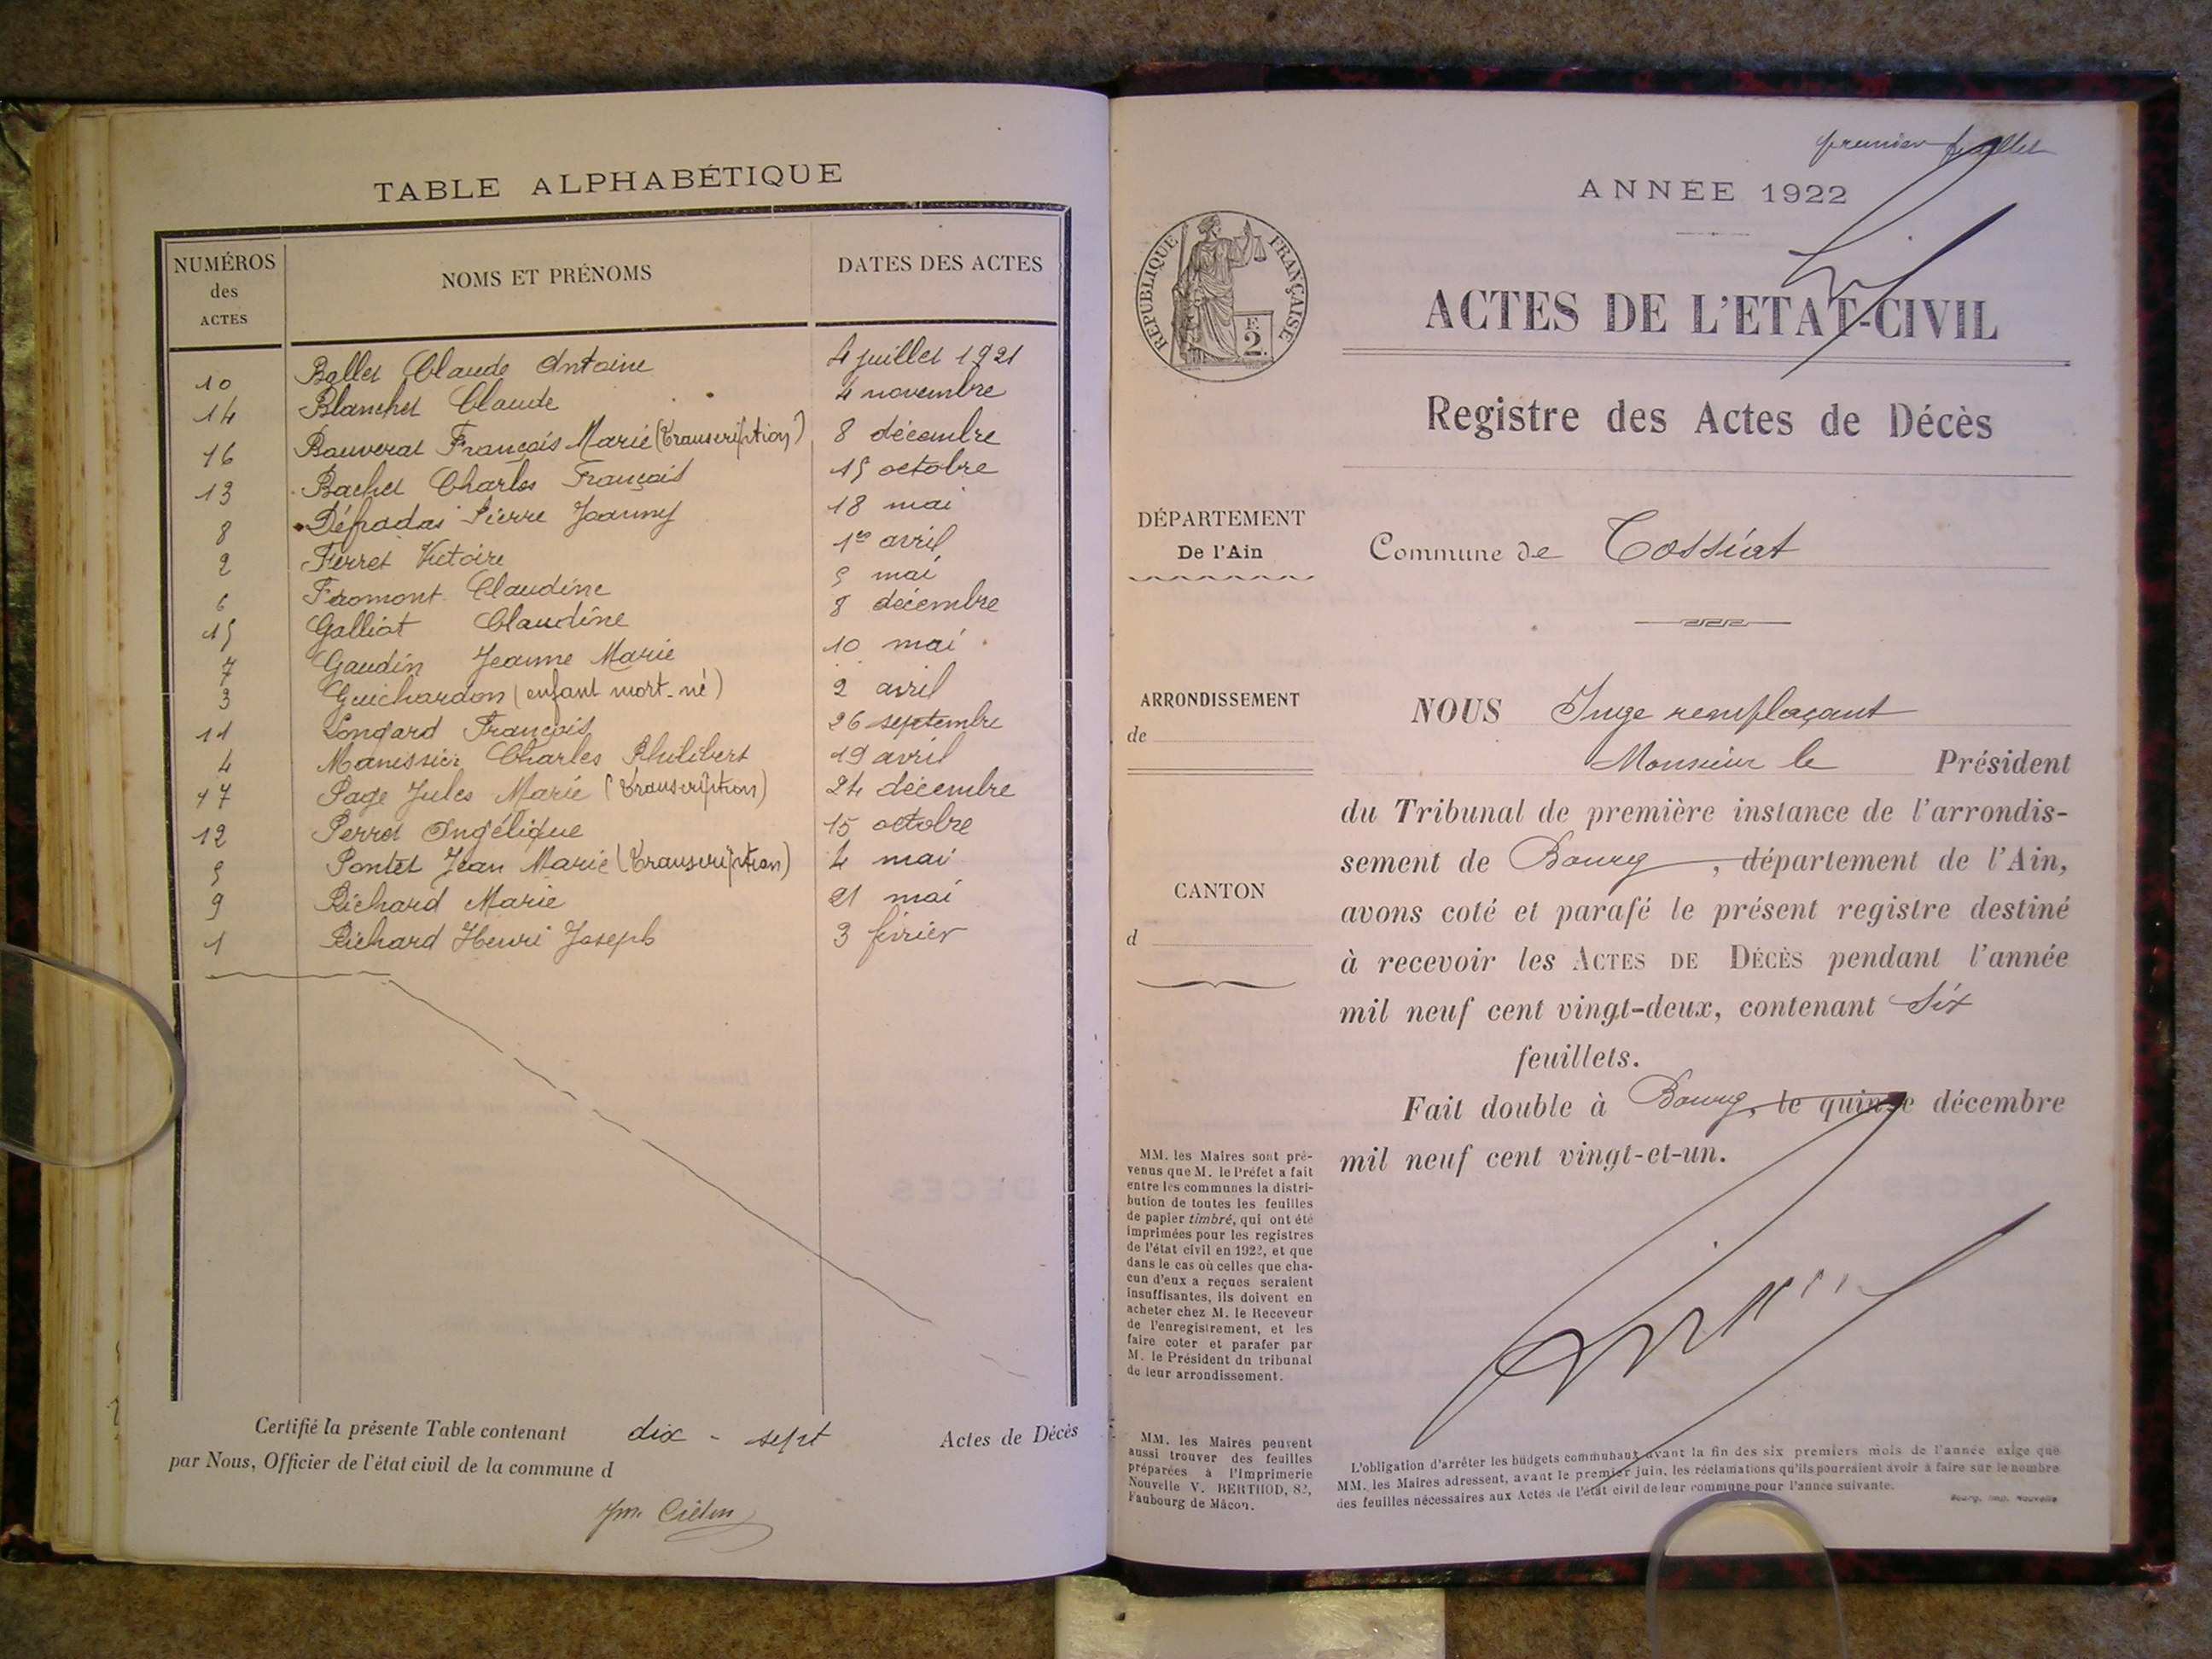 TABLE ALPHABÉTIQUE
NUMÉROS des ACTES NOMS ET PRÉNOMS DATES DES ACTES
10 Ballet Claude Antoine 4 juillet 1921
14 Blanchet Claude 4 novembre
16 Bouverat François Marie (transcription) 8 décembre
13 Bachet Charles François 15 octobre
8 Défradas Pierre Joanny 18 mai
2 Ferret Victoire 1er avril
6 Fromont Claudine 5 mai
15 Galliat Claudine 8 décembre
7 Gaudin Jeanne Marie 10 mai
3 Guichardon (enfant mort-né) 2 avril
11 Longard François 26 septembre
4 Manissier Charles Philibert 19 avril
17 Page Jules Marie (transcription) 24 décembre
12 Perret Angélique 15 octobre
5 Pontet Jean Marie (transcription) 4 mai
9 Richard Marie 21 mai
1 Richard Henri Joseph 3 février
Certifié la présente Table contenant dix-sept Actes de Décès
par Nous, Officier de l'état civil de la commune d
premier feuillet
ANNÉE 1922
RÉPUBLIQUE FRANÇAISE
F. 2.
ACTES DE L'ETAT-CIVIL
Registre des Actes de Décès
DÉPARTEMENT
De l'Ain
Commune de Tossiat
ARRONDISSEMENT
de
CANTON
d
NOUS Juge remplaçant
Monsieur le Président
du Tribunal de première instance de l'arrondis-
sement de Bourg, département de l'Ain,
avons coté et parafé le présent registre destiné
à recevoir les ACTES DE DÉCÈS pendant l'année
mil neuf cent vingt-deux, contenant Six
feuillets.
Fait double à Bourg, le quinze décembre
mil neuf cent vingt-et-un.
MM. les Maires sont pré-
venus que M. le Préfet a fait
entre les communes la distri-
bution de toutes les feuilles
de papier timbré, qui ont été
imprimées pour les registres
de l'état civil en 1922, et que
dans le cas où celles que cha-
cun d'eux a reçues seraient
insuffisantes, ils doivent en
acheter chez M. le Receveur
de l'enregistrement, et les
faire coter et parafer par
M. le Président du tribunal
de leur arrondissement.
MM. les Maires peuvent
aussi trouver des feuilles
préparées à l'Imprimerie
Nouvelle V. BERTHOD, 82,
Faubourg de Mâcon.
L'obligation d'arrêter les budgets communaux avant la fin des six premiers mois de l'année exige que
MM. les Maires adressent, avant le premier juin, les réclamations qu'ils pourraient avoir à faire sur le nombre
des feuilles nécessaires aux Actes de l'état civil de leur commune pour l'année suivante.
Bourg, Imp. Nouvelle